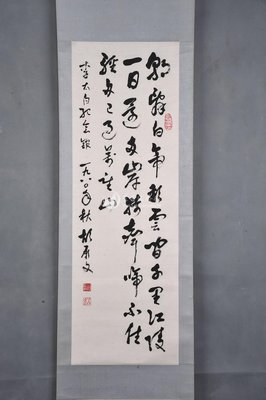 朝辞白帝彩云间千里江陵
一日还两岸猿声啼不住
轻舟已过万重山
李太白
一九八〇年秋